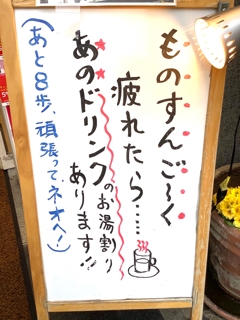 ものすんご〜く
疲れたら……
あのドリンクのお湯割り
あります!!
(あと8歩、頑張って、ネオへ!)